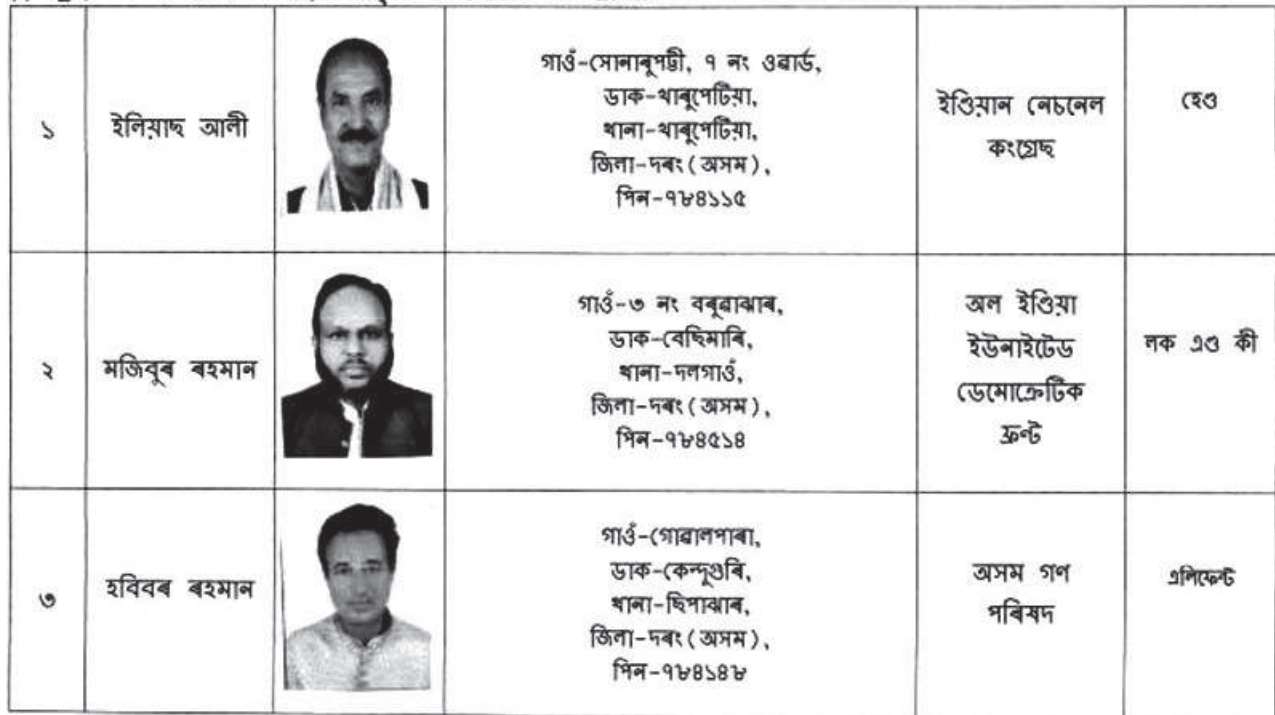 ১
ইলিয়াছ আলী
গাওঁ-সোনাৰুপট্টী, ৭ নং ওৱাৰ্ড,
ডাক-খাৰুপেটিয়া,
থানা-খাৰুপেটিয়া,
জিলা-দৰং (অসম),
পিন-৭৮৪১১৫
ইণ্ডিয়ান নেচনেল
কংগ্ৰেছ
হেণ্ড
২
মজিবুৰ ৰহমান
গাওঁ-৩ নং বৰুৱাঝাৰ,
ডাক-বেছিমাৰি,
থানা-দলগাওঁ,
জিলা-দৰং (অসম),
পিন-৭৮৪৫১৪
অল ইণ্ডিয়া
ইউনাইটেড
ডেমোক্ৰেটিক
ফ্ৰন্ট
লক এণ্ড কী
৩
হবিবৰ ৰহমান
গাওঁ-গোৱালপাৰা,
ডাক-কেন্দুগুৰি,
থানা-ছিপাঝাৰ,
জিলা-দৰং (অসম),
পিন-৭৮৪১৪৮
অসম গণ
পৰিষদ
এলিফেন্ট